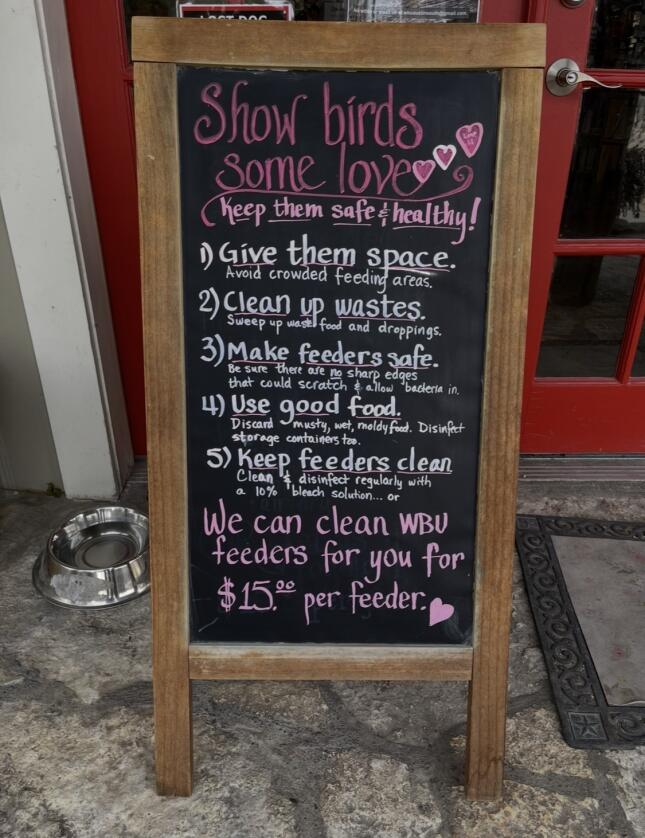 LOST DOG
Show birds
some love
Keep them safe & healthy!
1) Give them space.
Avoid crowded feeding areas.
2) Clean up wastes.
Sweep up waste food and droppings.
3) Make feeders safe.
Be sure there are no sharp edges
that could scratch & allow bacteria in.
4) Use good food.
Discard musty, wet, moldy food. Disinfect
storage containers too.
5) Keep feeders clean
Clean & disinfect regularly with
a 10% bleach solution... or
We can clean WBU
feeders for you for
$15.00 per feeder.